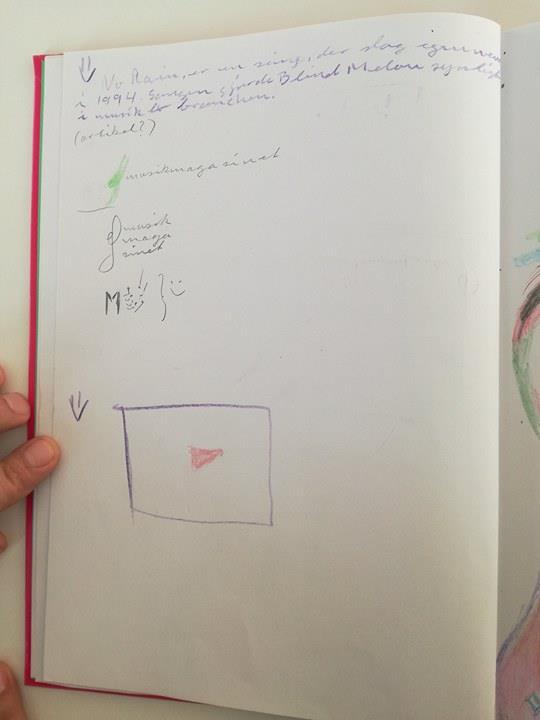 No Rain, er en sang, der slog igennem
i 1994. Sangen gjorde Blind Melon synlige
i musik branchen.
(artikel?)
musikmagasinet
musik
maga
sinet
M